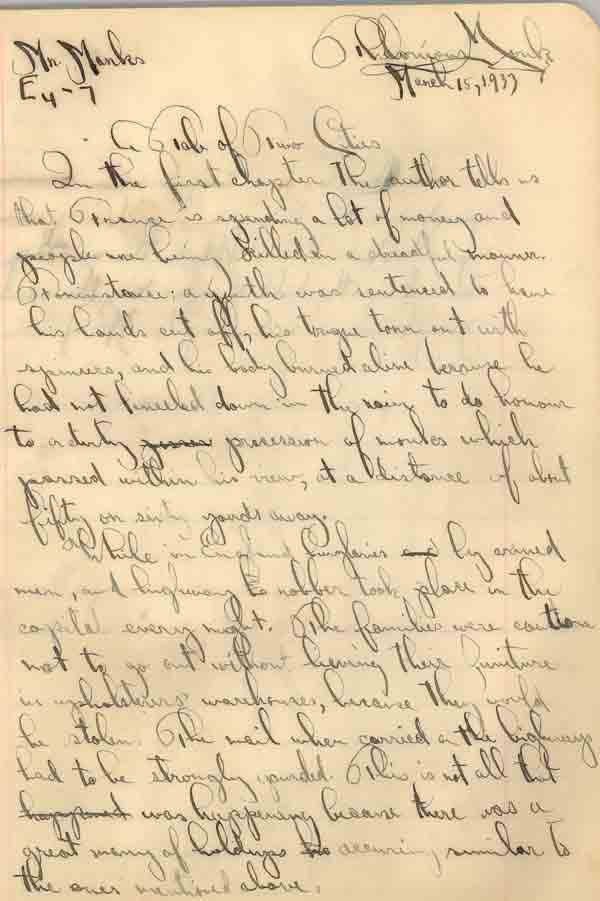 Mr. Marks
Thelonious Monk
E4-7
March 15, 1933
A Tale of Two Cities
In the first chapter the author tells us
that France is spending a lot of money and
people are being killed in a dreadful manner.
For instance: a youth was sentenced to have
his hands cut off, his tongue torn out with
spincers, and his body burned alive because he
had not kneeled down in the rain to do honour
to a dirty procession of monks which
passed within his view, at a distance of about
fifty or sixty yards away.
While in England burglaries and by armed
men, and highway to robber took place in the
capital every night. The families were caution
not to go out without having their furniture
in upholsterers' warehouses, because they would
be stolen. The mail when carried on the highways
had to be strongly guarded. This is not all that
happened was happening because there was a
great many of holdups occuring similar to
the ones mentioned above.